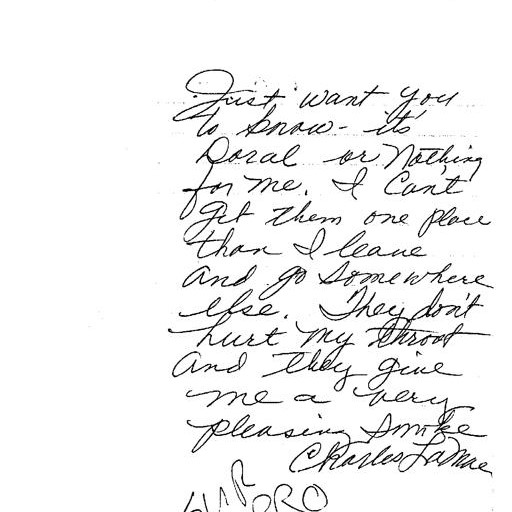 Just want you
to know - its
Doral or Nothing
for me. I Can't
get them one place
than I leave
and go Somewhere
else. They don't
hurt my throat
And they give
me a very
pleasing Smoke
Charles LaMae